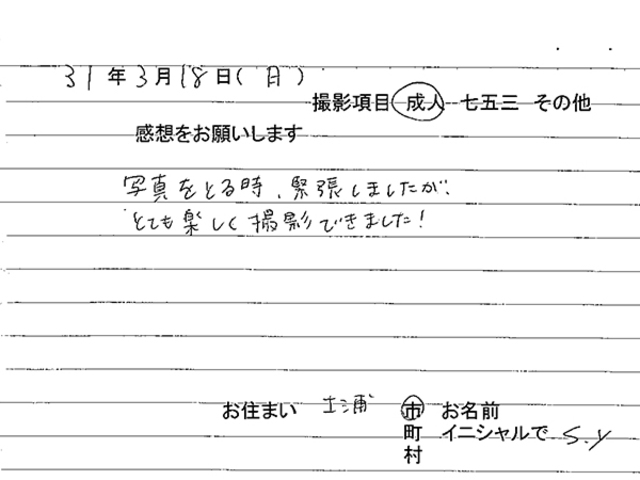 31年3月18日(月)
撮影項目 成人 七五三 その他
感想をお願いします
写真をとる時、緊張しましたが、
とても楽しく撮影できました!
お住まい 土浦 市 お名前
町 イニシャルで S.Y
村